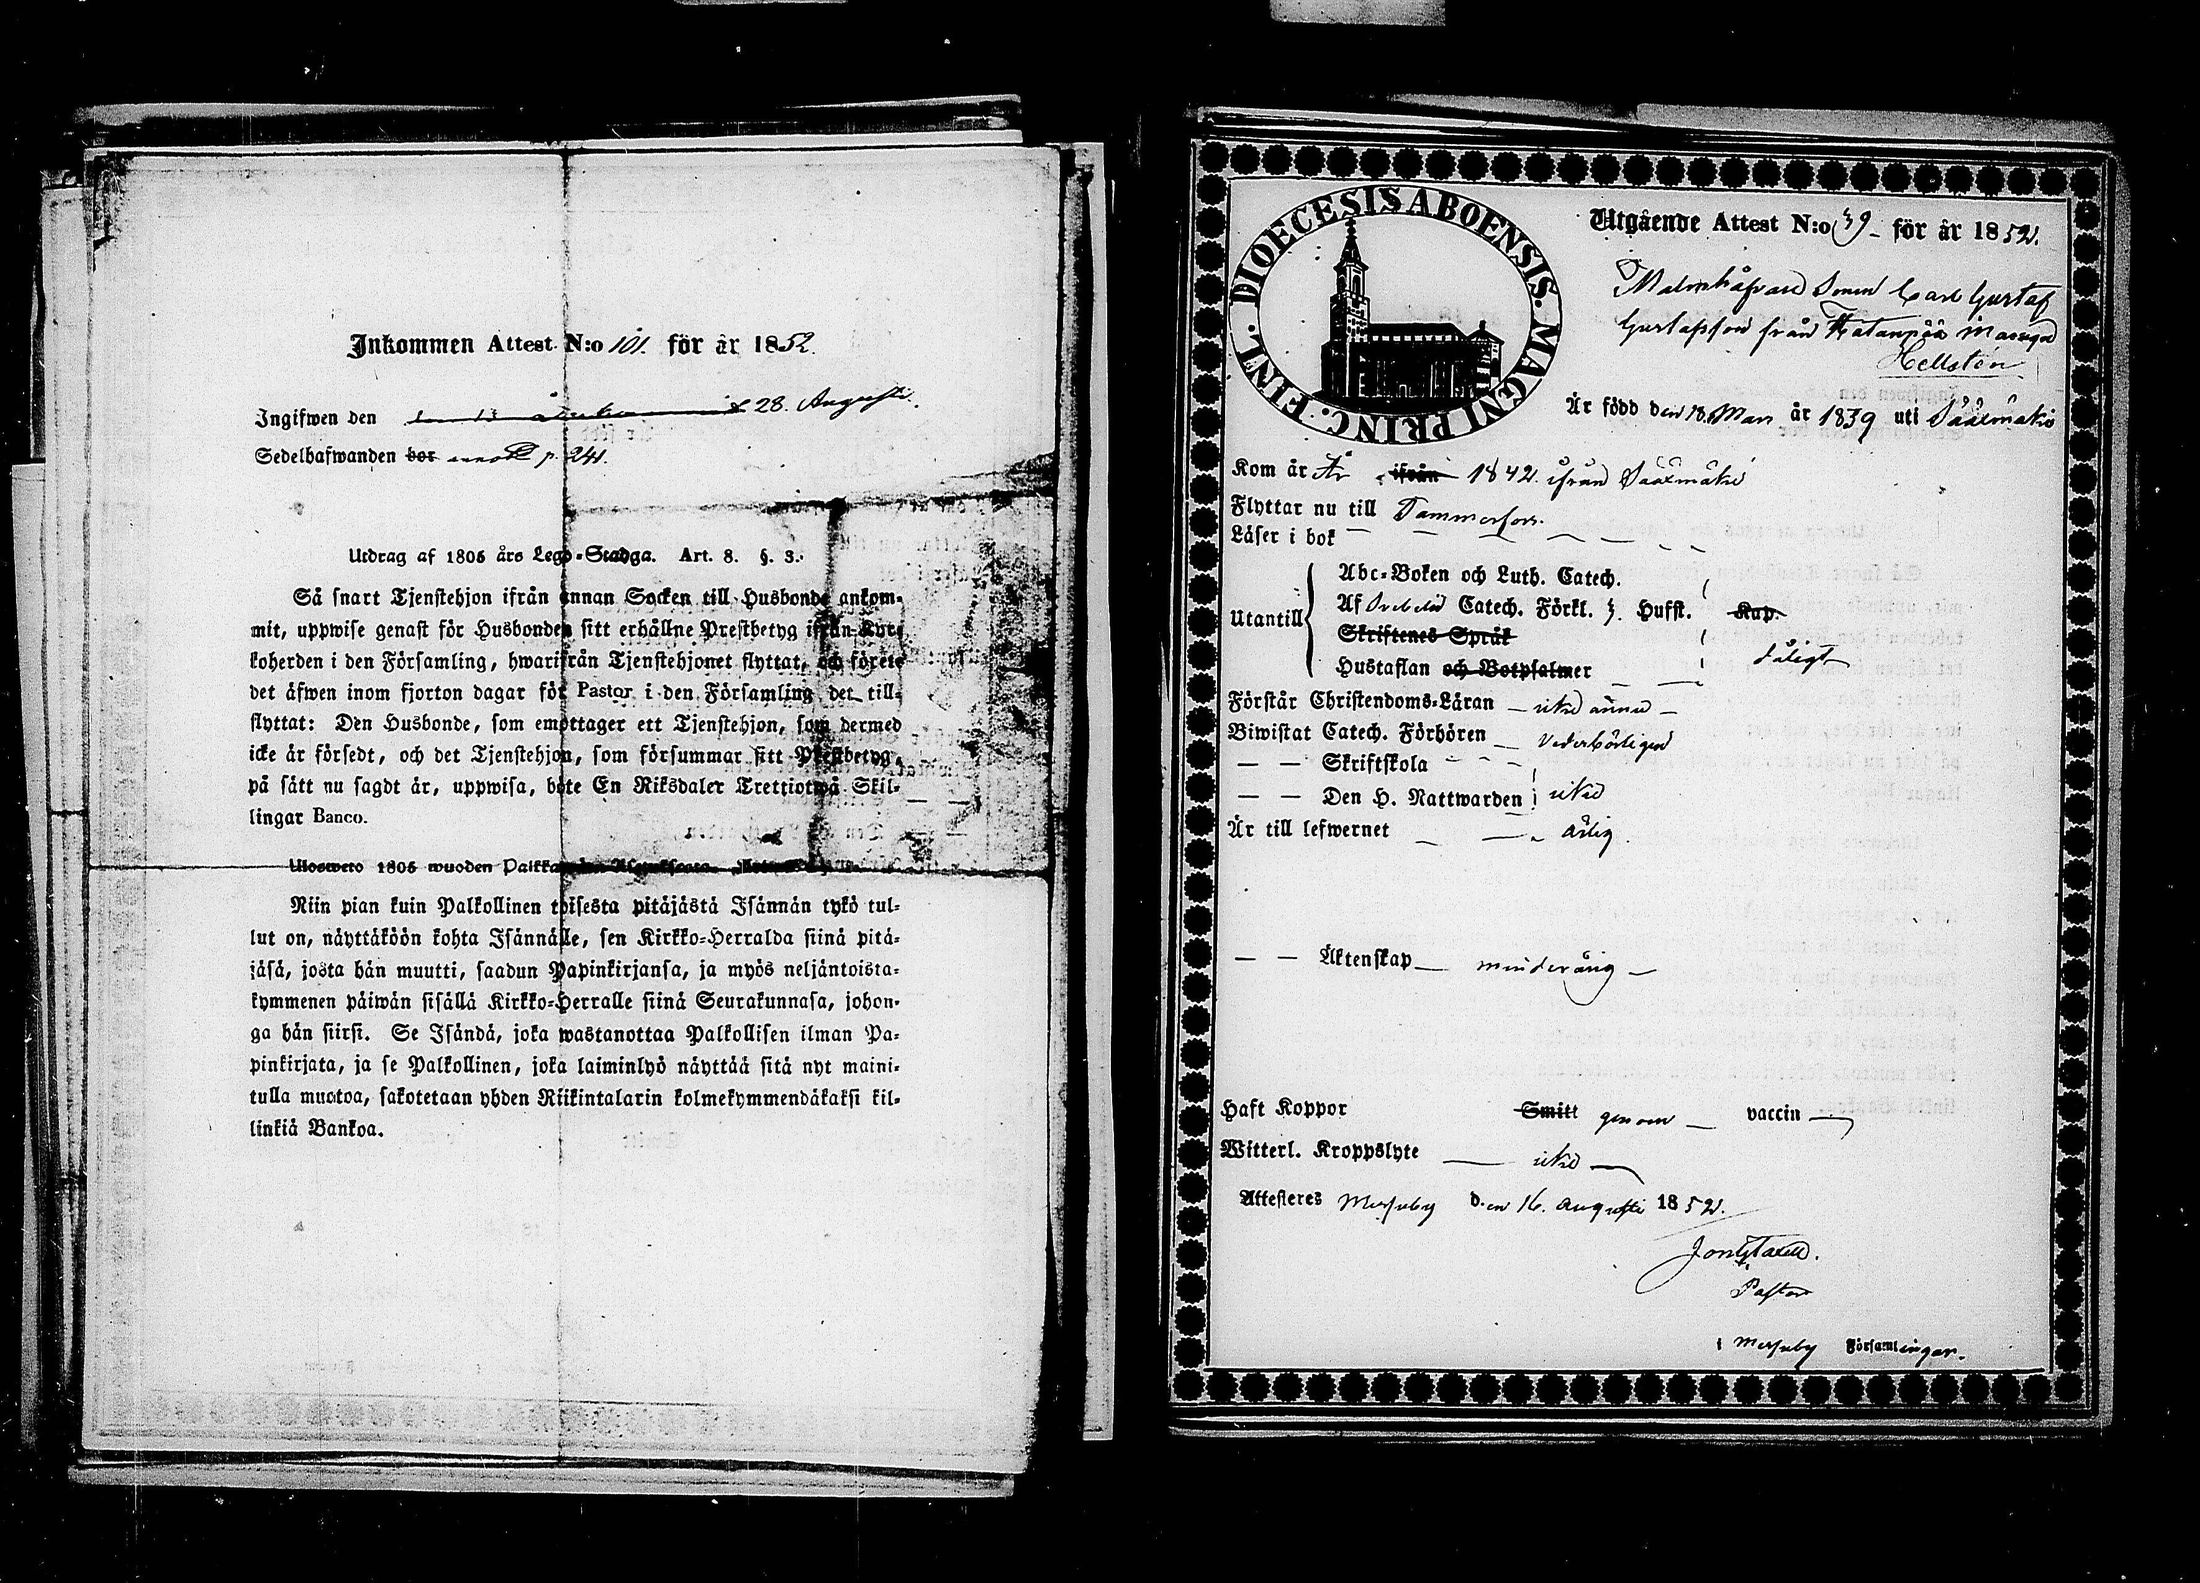 Inkommen Attest N:o 101. för år 1852.
Ingifwen den 28. Augusti.
Sedelhafwanden bor annot. p. 241.
Utdrag af 1805 års Lego-Stadga. Art. 8. §. 3.
Så snart Tjenstehjon ifrån annan Socken till Husbonde ankom-
mit, uppwise genast för Husbonden sitt erhållne Prestbetyg ifrån Kyr-
koherden i den Församling, hwarifrån Tjenstehjonet flyttat, och förete
det äfwen inom fjorton dagar för Pastor i den Församling det till-
flyttat: Den Husbonde, som emottager ett Tjenstehjon, som dermed
icke är försedt, och det Tjenstehjon, som försummar sitt Prestbetyg,
på sätt nu sagdt är, uppwisa, böte En Riksdaler Trettiotwå Skil-
lingar Banco.
Ulosweto 1805 wuoden Palkka
Niin pian kuin Palkollinen toisesta pitäjästä Isännän tykö tul-
lut on, näyttäköön kohta Isännälle, sen Kirkko-Herralda siinä pitä-
jäsä, josta hän muutti, saadun Papinkirjansa, ja myös neljäntoista-
kymmenen päiwän sisällä Kirkko-Herralle siinä Seurakunnasa, johon-
ga hän siirsi. Se Isändä, joka wastanottaa Palkollisen ilman Pa-
pinkirjata, ja se Palkollinen, joka laiminlyö näyttää sitä nyt maini-
tulla muotoa, sakotetaan yhden Riikintalarin kolmekymmendäkaksi kil-
linkiä Bankoa.
DIOECESIS ABOENSIS. MAGNI PRINC. FINL.
Utgående Attest N:o 39 för år 1852.
Sonen Carl Gustaf
Gustafsson från Hatanpää
Hellsten
Är född den 18. Mars år 1839 uti Sääxmäki
Kom år År ifrån 1842 ifrån Sääxmäki
Flyttar nu till Tammerfors.
Läser i bok
Abc-Boken och Luth. Catech.
Utantill Af Svebelii Catech. Förkl. Hufst. Kap.
Skriftenes Språk
Hustaflan och Botpsalmer dåligt
Förstår Christendoms-Läran icke ännu
Biwistat Catech. Förhören vederbörligen
Skriftskola
Den H. Nattwarden icke
Är till lefwernet ärlig.
Äktenskap minderårig
Haft Koppor Smitt genom vaccin
Witterl. Kroppslyte icke
Attesteres Messuby den 16. Augusti 1852.
Pastor
i Messuby Församlingar.